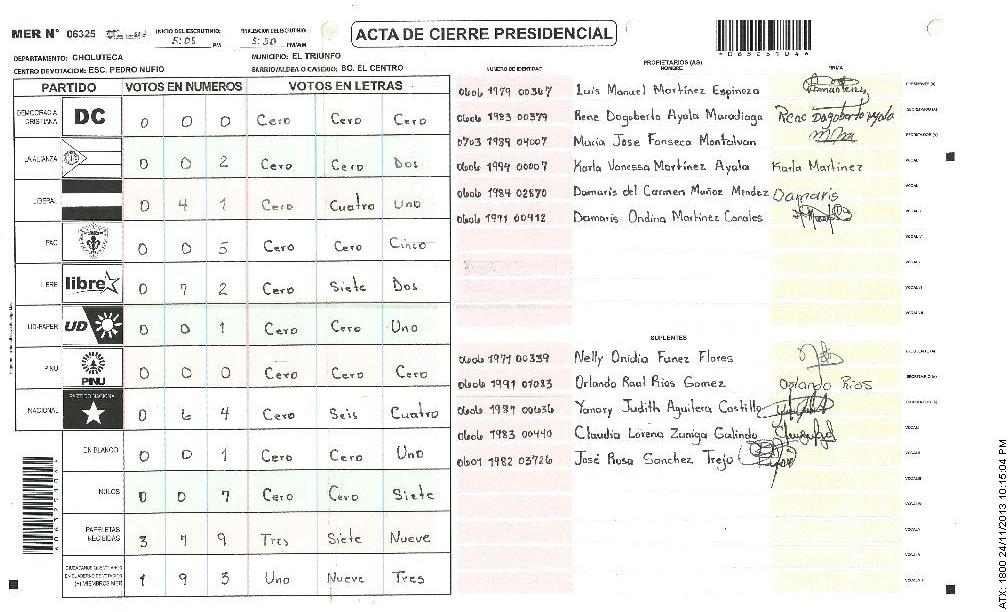 MER N° 06325
INICIO DEL ESCRUTINIO: 5:05 PM
FINALIZACION DEL ESCRUTINIO: 5:30 PM/AM
ACTA DE CIERRE PRESIDENCIAL
*063251044*
DEPARTAMENTO: CHOLUTECA
MUNICIPIO: EL TRIUNFO
CENTRO DEVOTACION: ESC. PEDRO NUFIO
BARRIO/ALDEA O CASERIO: BO. EL CENTRO
PARTIDO VOTOS EN NUMEROS VOTOS EN LETRAS
DEMOCRACIA CRISTIANA DC 0 0 0 Cero Cero Cero
LA ALIANZA 0 0 2 Cero Cero Dos
LIBERAL 0 4 1 Cero Cuatro Uno
PAC 0 0 5 Cero Cero Cinco
LIBRE libre 0 7 2 Cero Siete Dos
UD-FAPER UD 0 0 1 Cero Cero Uno
PINU PINU 0 0 0 Cero Cero Cero
NACIONAL PARTIDO NACIONAL 0 6 4 Cero Seis Cuatro
EN BLANCO 0 0 1 Cero Cero Uno
NULOS 0 0 7 Cero Cero Siete
PAPELETAS RECIBIDAS 3 7 9 Tres Siete Nueve
CIUDADANOS QUE VOTARON EN CUADERNO DE VOTACION (+) MIEMBROS MER 1 9 3 Uno Nueve Tres
PROPIETARIOS (AS)
NUMERO DE IDENTIDAD NOMBRE FIRMA
0606 1979 00367 Luis Manuel Martinez Espinoza PRESIDENTE (A)
0606 1983 00379 Rene Dagoberto Ayala Maradiaga Rene Dagoberto Ayala SECRETARIO (A)
0703 1989 04007 Maria Jose Fonseca Montalvan ESCRUTADOR (A)
0606 1994 00007 Karla Vanessa Martinez Ayala Karla Martinez VOCAL I
0606 1984 02870 Damaris del Carmen Muñoz Mendez Damaris VOCAL II
0606 1991 00412 Damaris Ondina Martinez Canales VOCAL III
VOCAL IV
VOCAL V
VOCAL VI
VOCAL VII
SUPLENTES
0606 1977 00339 Nelly Onidia Funez Flores PRESIDENTE (A)
0606 1991 01083 Orlando Raul Rios Gomez Orlando Rios SECRETARIO (A)
0606 1987 00636 Yanory Judith Aguilera Castillo ESCRUTADOR (A)
0606 1983 00440 Claudia Lorena Zuniga Galindo VOCAL I
0601 1982 03726 José Rosa Sanchez Trejo VOCAL II
VOCAL III
VOCAL IV
VOCAL V
VOCAL VI
VOCAL VII
ATX: 1800 24/11/2013 10:15:04 PM